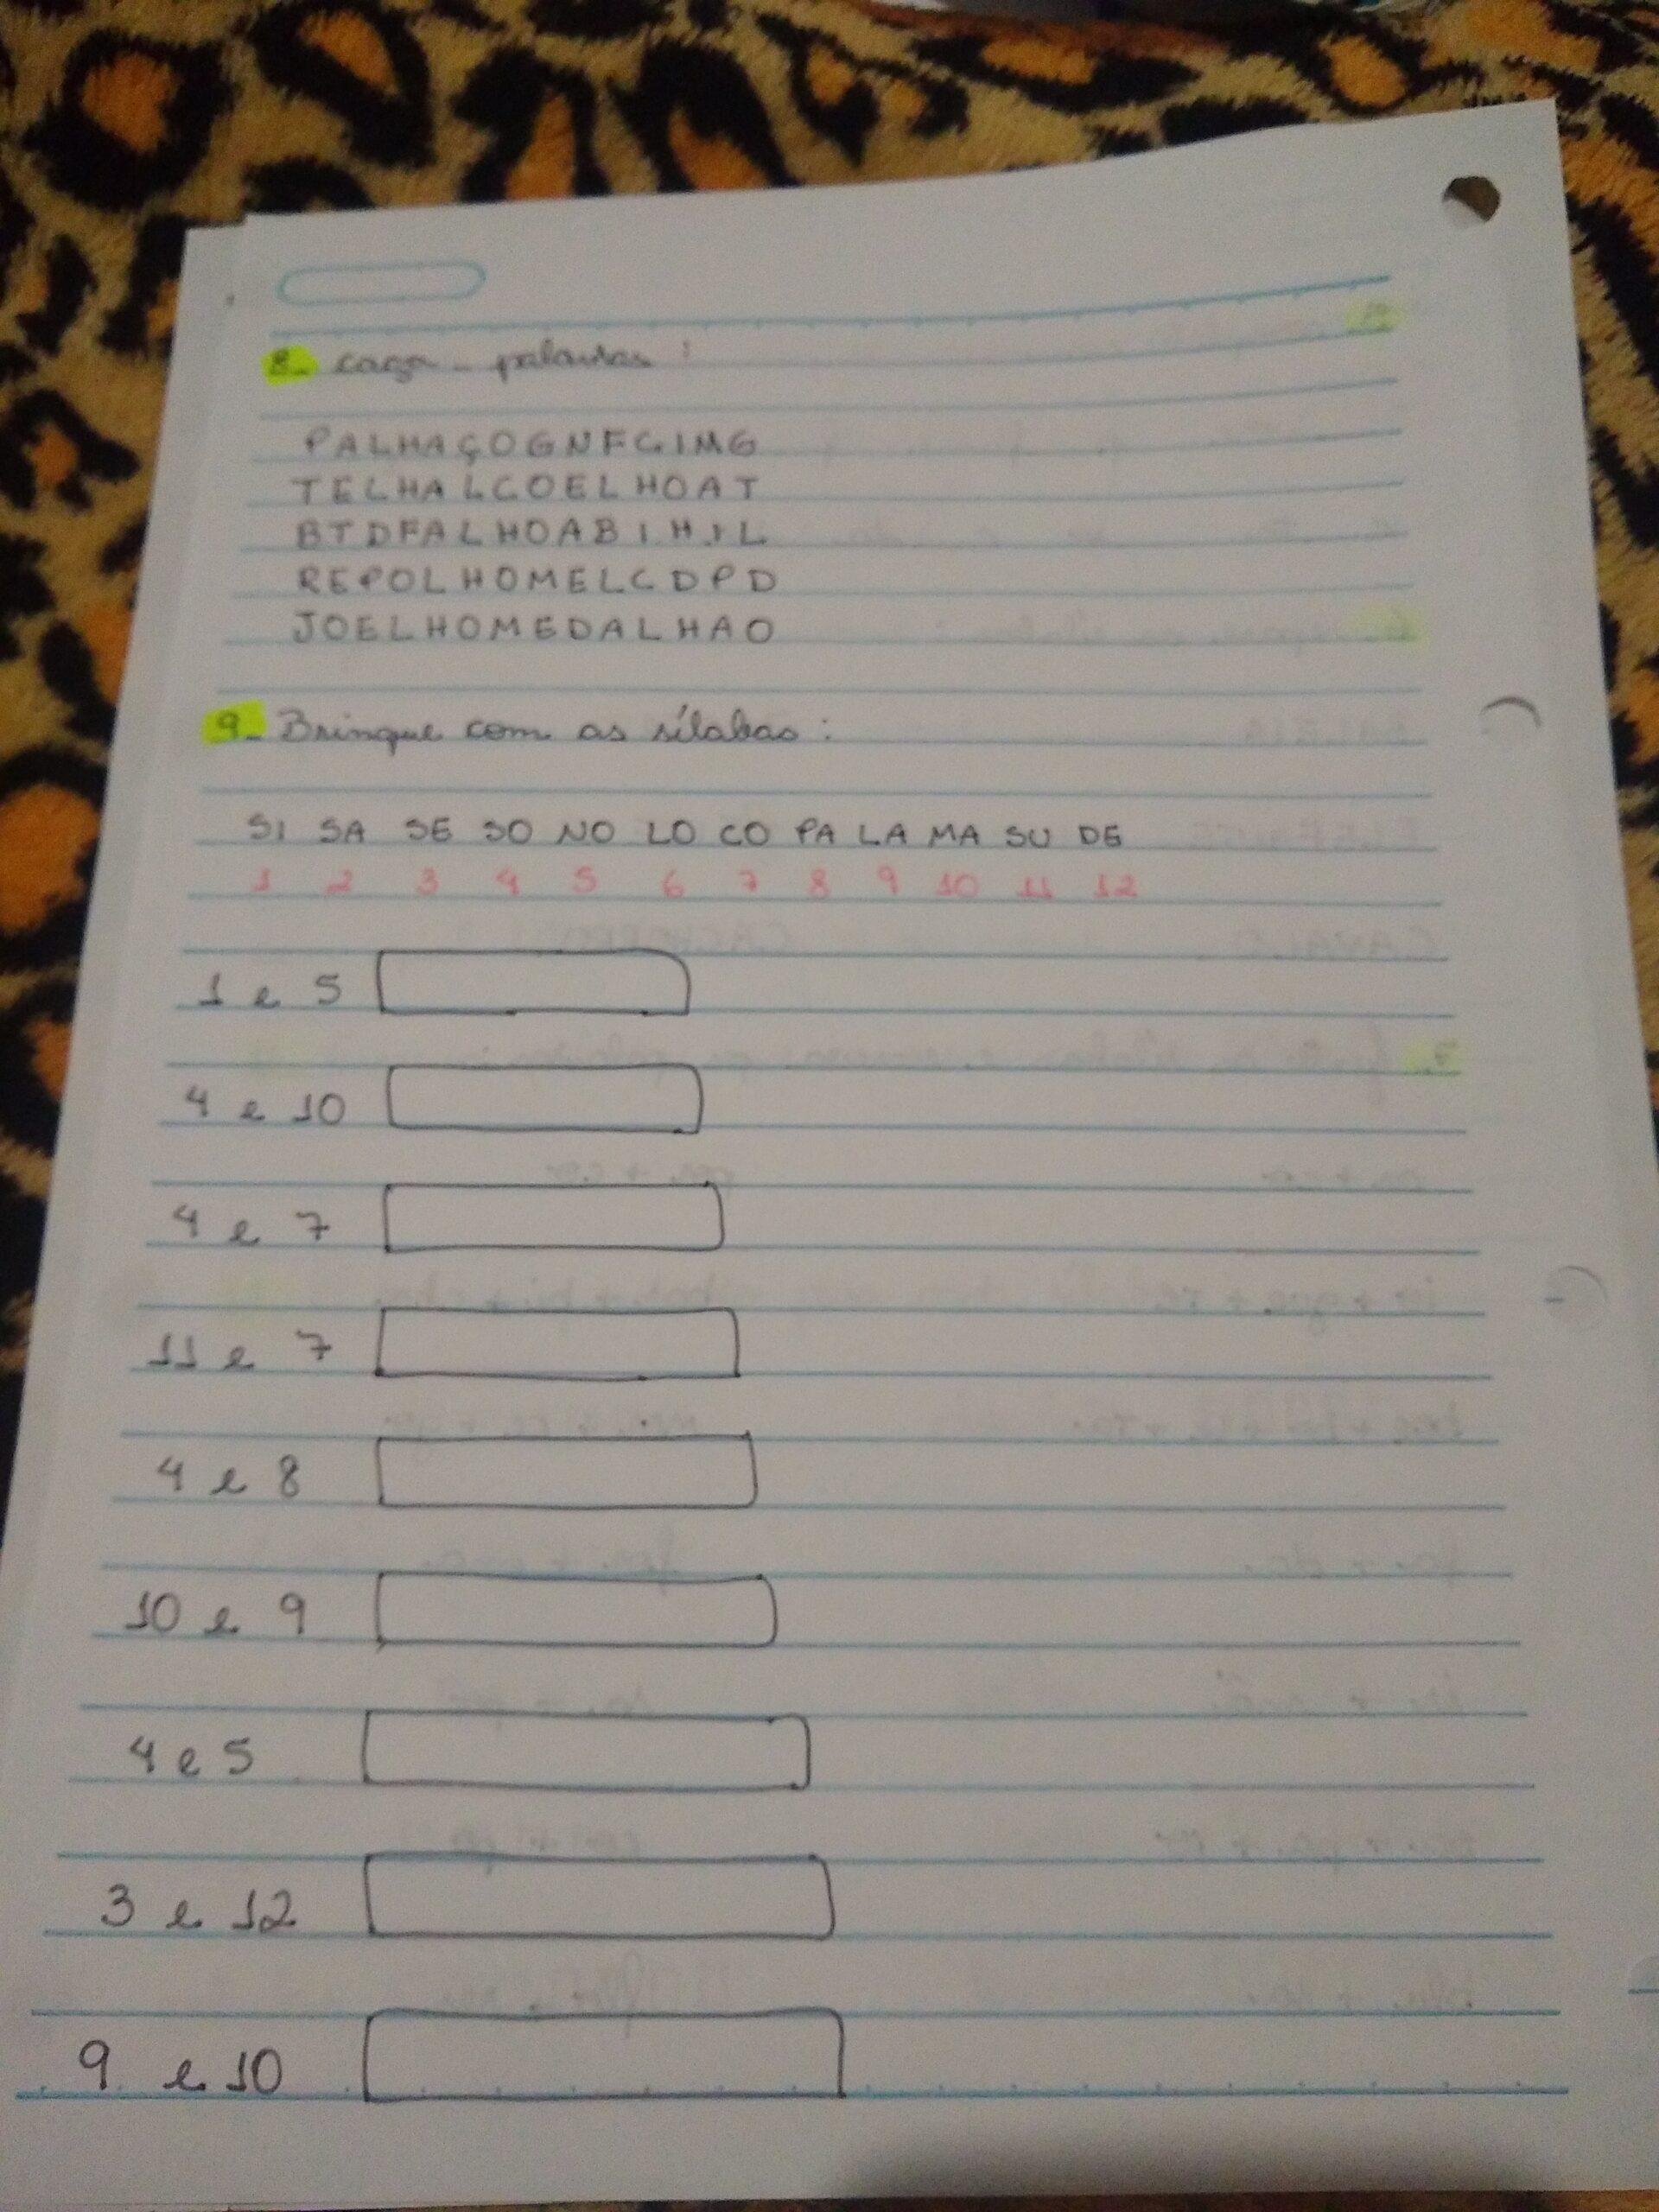 8- caça-palavras:
PALHAÇOGNFCIMG
TELHALCOELHOAT
BTDFALHOABIHIL
REPOLHOMELCDPD
JOELHOMEDALHAO
9- Brinque com as sílabas:
SI SA SE SO NO LO CO PA LA MA SU DE
1 2 3 4 5 6 7 8 9 10 11 12
1 e 5
4 e 10
4 e 7
11 e 7
4 e 8
10 e 9
4 e 5
3 e 12
9 e 10